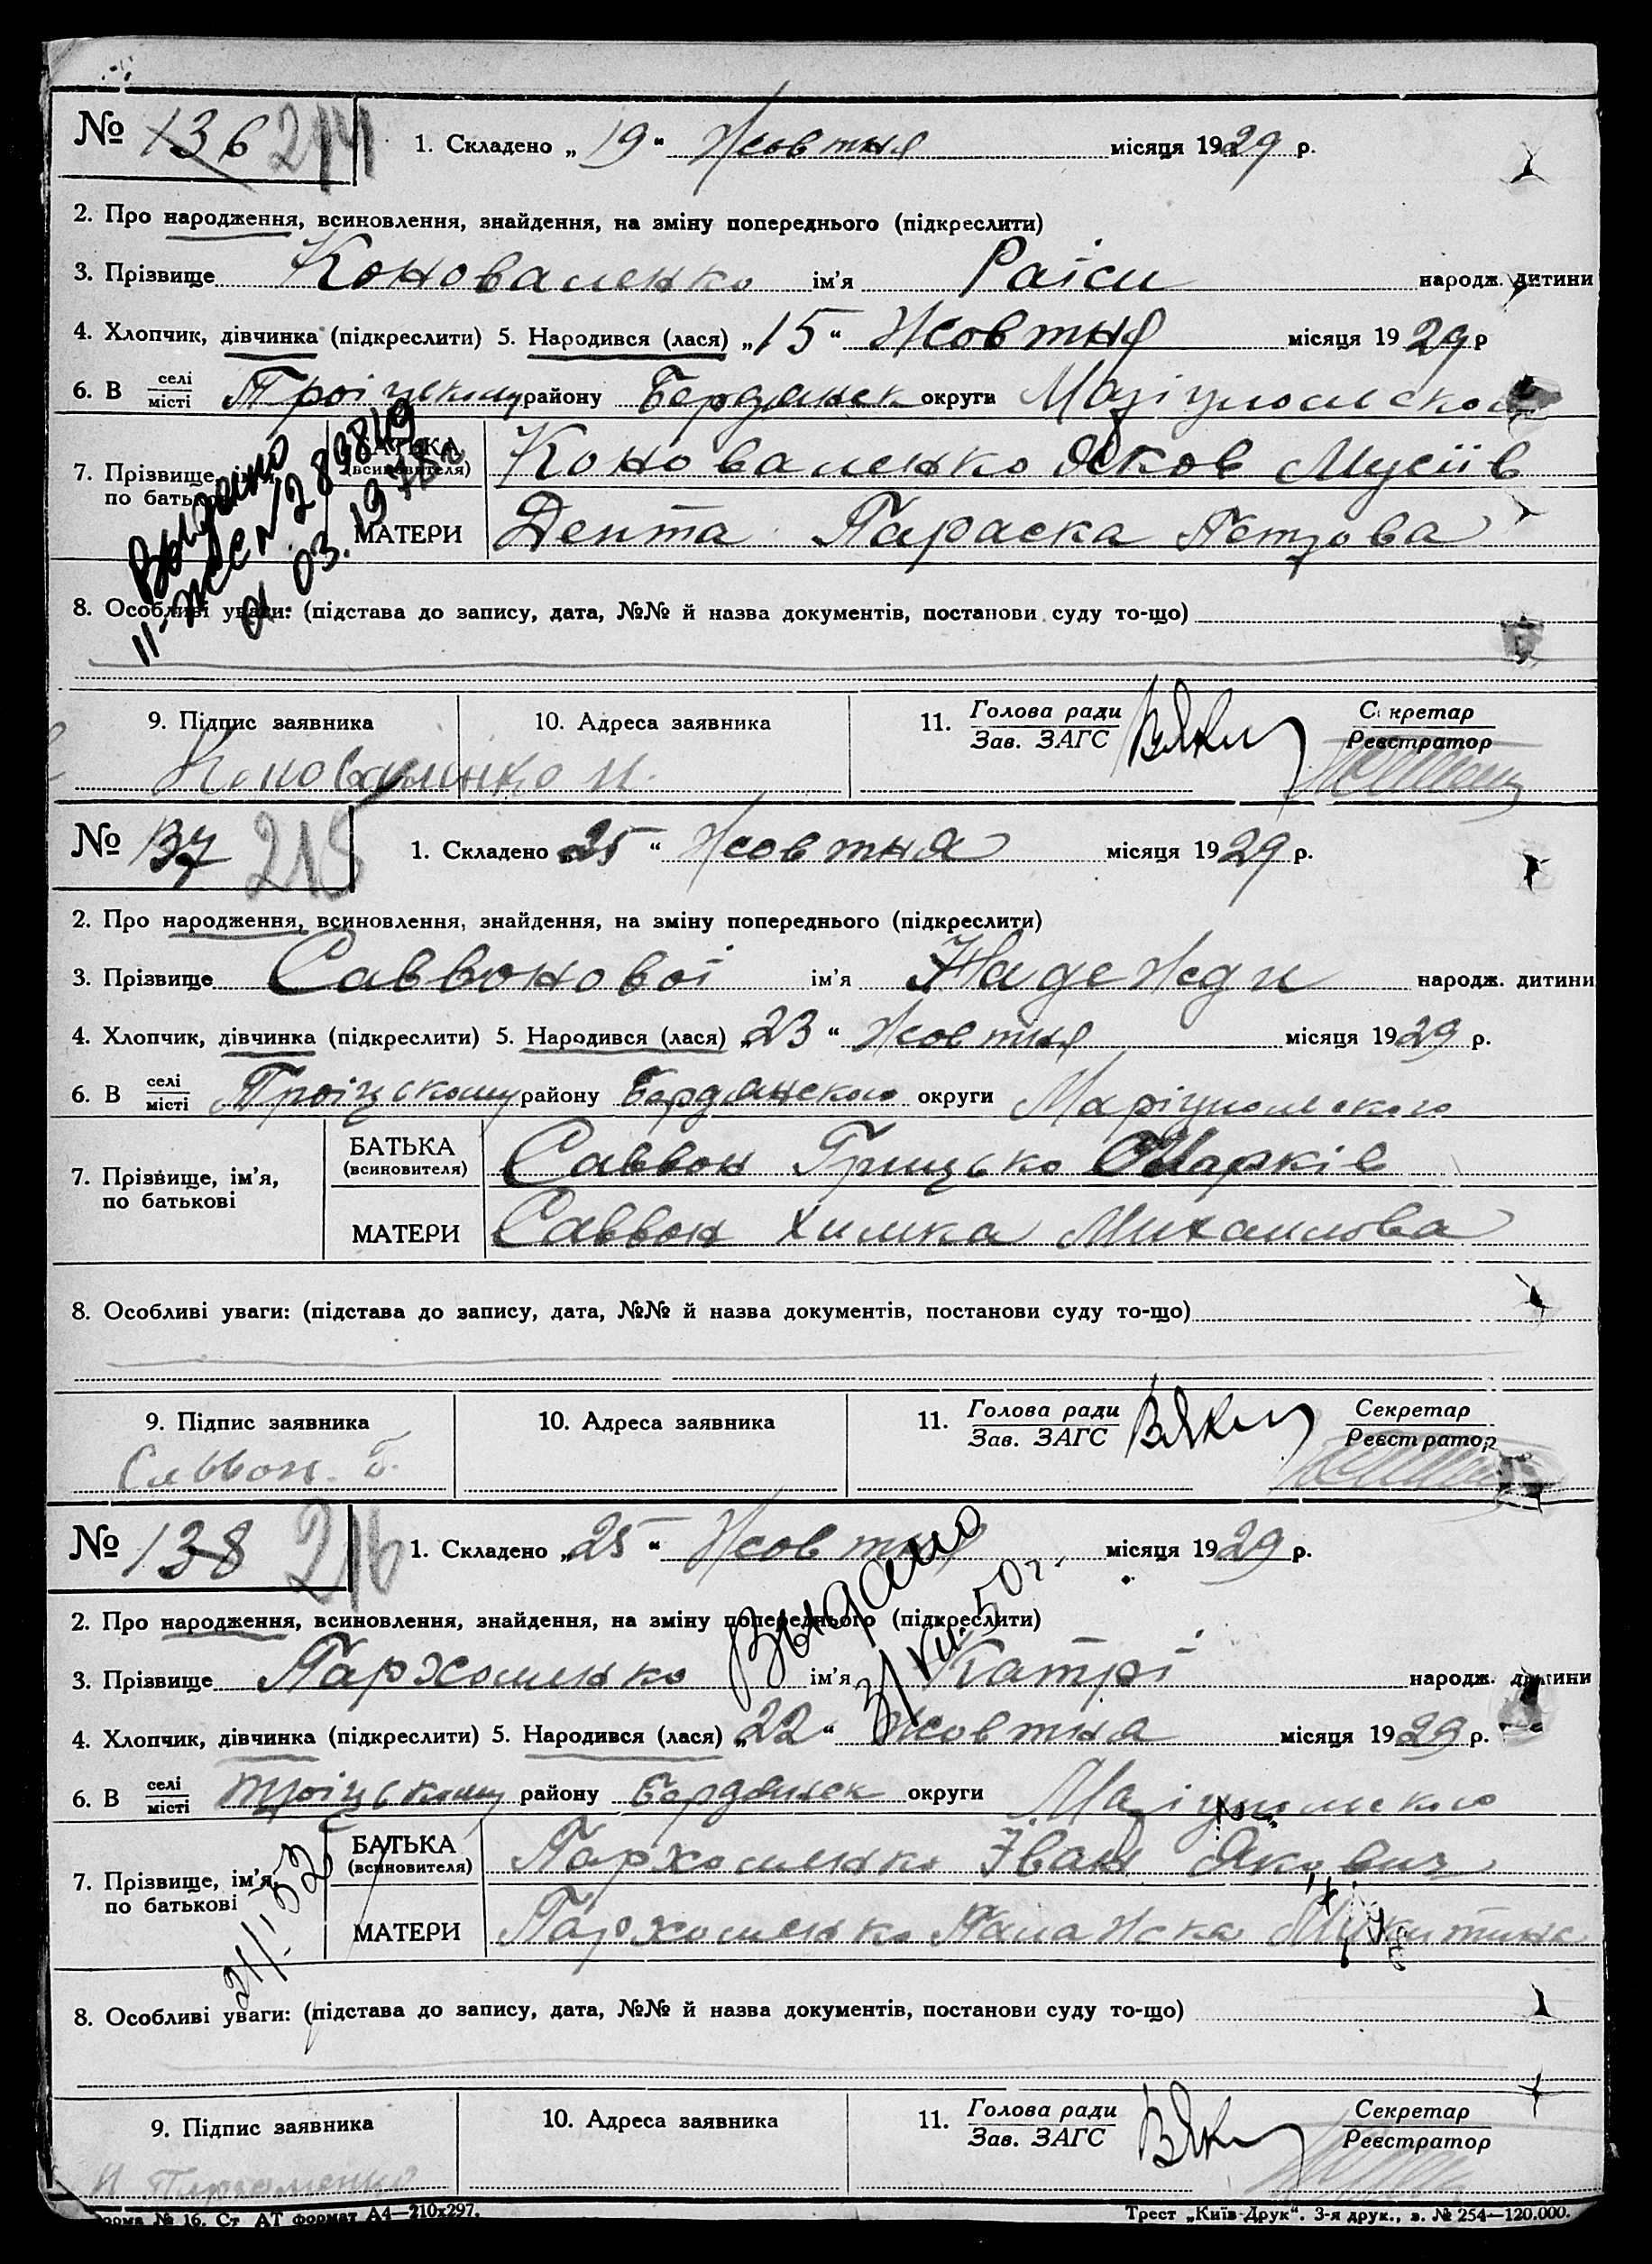 № 136 214 1. Складено „19“ Жовтня місяця 1929 р.
2. Про народження, всиновлення, знайдення, на зміну попереднього (підкреслити)
3. Прізвище Коноваленко ім’я Раїси народж. дитини
4. Хлопчик, дівчинка (підкреслити) 5. Народився (лася) „15“ Жовтня місяця 1929 р
6. В селі місті Троіцькому району Бердянськ округи
7. Прізвище по батькові БАТЬКА (всиновителя) Коноваленко Яков Мусіїв
МАТЕРИ Параска Петрова
Выдано
03.
8. Особливі уваги: (підстава до запису, дата, №№ й назва документів, постанови суду то-що)
9. Підпис заявника 10. Адреса заявника 11. Голова ради Зав. ЗАГС Секретар Реєстратор
Коновалинко
№ 137 215 1. Складено 25“ Жовтня місяця 1929 р.
2. Про народження, всиновлення, знайдення, на зміну попереднього (підкреслити)
3. Прізвище Саввонової ім’я Надежди народж. дитини
4. Хлопчик, дівчинка (підкреслити) 5. Народився (лася) „23“ Жовтня місяця 1929 р.
6. В селі місті Троіцькому району Бердянского округи Маріупольского
7. Прізвище, ім’я, по батькові БАТЬКА (всиновителя) Саввон Грицько Марків
МАТЕРИ Саввон Химка Михаилова
8. Особливі уваги: (підстава до запису, дата, №№ й назва документів, постанови суду то-що)
9. Підпис заявника 10. Адреса заявника 11. Голова ради Зав. ЗАГС Секретар Реєстратор
Саввон. Г.
№ 138 216 1. Складено „25“ Жовтня місяця 1929 р.
2. Про народження, всиновлення, знайдення, на зміну попереднього (підкреслити)
Выдано
3/VII.50г.
3. Прізвище Пархоменко ім’я Катрі народж. дитини
4. Хлопчик, дівчинка (підкреслити) 5. Народився (лася) „22“ Жовтня місяця 1929 р.
6. В селі місті Троіцькому району Бердянськ округи
7. Прізвище, ім’я, по батькові БАТЬКА (всиновителя) Пархоменко Іван Якович
МАТЕРИ Пархоменко Палажка
8. Особливі уваги: (підстава до запису, дата, №№ й назва документів, постанови суду то-що)
9. Підпис заявника 10. Адреса заявника 11. Голова ради Зав. ЗАГС Секретар Реєстратор
И Пархоменко
форма № 16. Ст АТ формат А4—210х297. Трест „Київ-Друк“. 3-я друк., з. № 254—120.000.